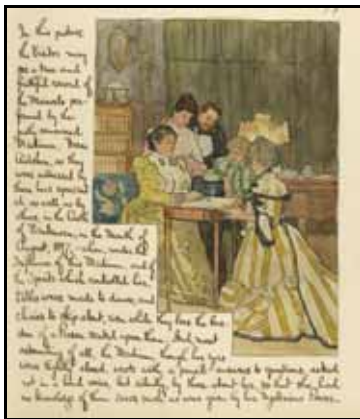 In this picture
the Visitor may
see a true and
faithful record of
the Marvels per-
formed by the
justly renowned
Medium
as they
were witnessed by
these here
at, as well as by
others, in the Castle
of in the Month of
August, when, under the
Influence of this Medium, and of
the Spirits which controlled her
Tables were made to dance, and
chairs to skip about, even while they bore the bur-
den of a Person seated upon them. And, most
astonishing of all, the Medium, though her eyes
were tightly closed, wrote with a pencil answers to questions, asked
not in a loud voice, but silently by those about her, so that she had
no knowledge of them save such as was given by her Mysterious Powers.